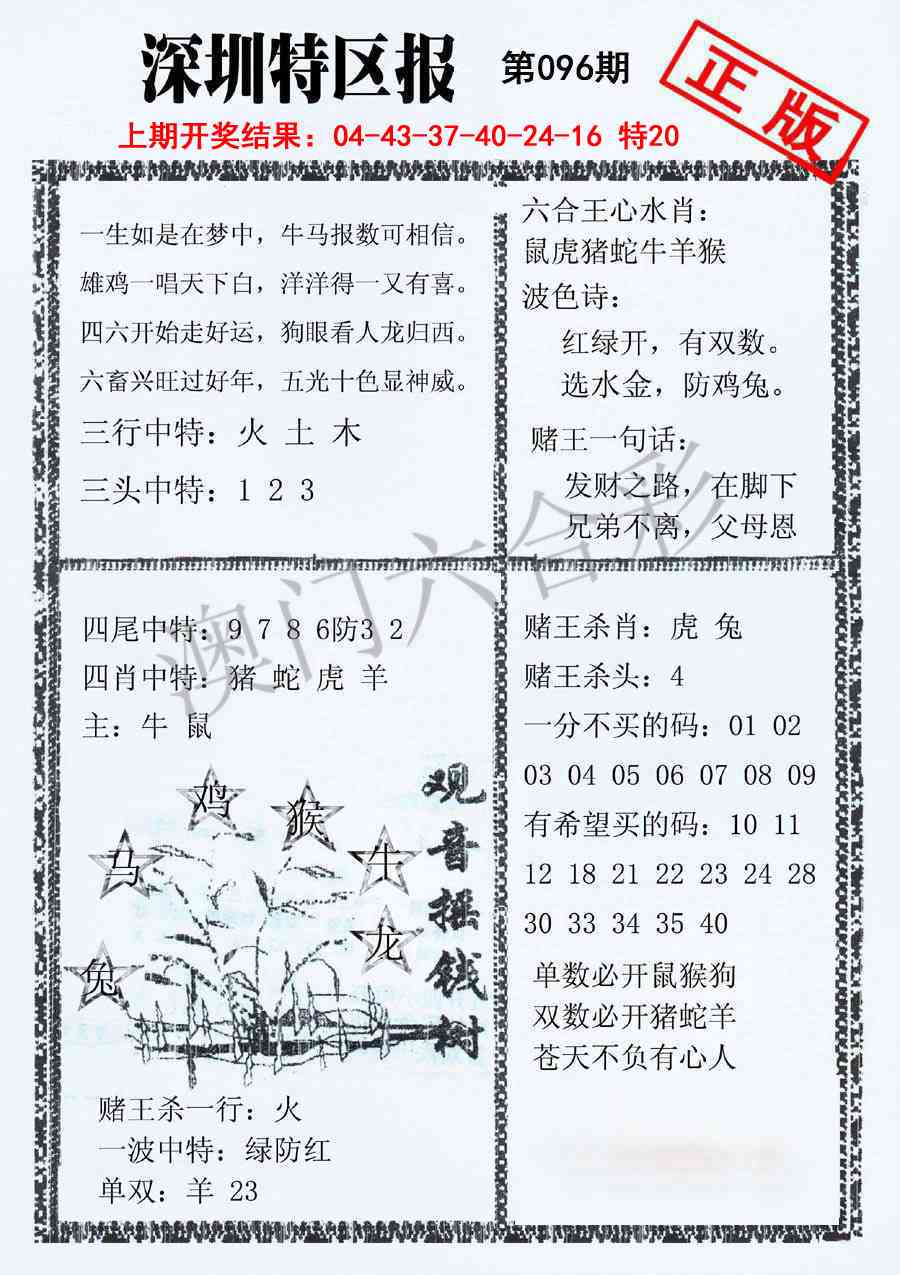 深圳特区报 第096期
正版
上期开奖结果：04-43-37-40-24-16 特20
一生如是在梦中，牛马报数可相信。
雄鸡一唱天下白，洋洋得一又有喜。
四六开始走好运，狗眼看人龙归西。
六畜兴旺过好年，五光十色显神威。
三行中特：火 土 木
三头中特：1 2 3
六合王心水肖：
鼠虎猪蛇牛羊猴
波色诗：
红绿开，有双数。
选水金，防鸡兔。
赌王一句话：
发财之路，在脚下
兄弟不离，父母恩
澳门六合彩
四尾中特：9 7 8 6防3 2
四肖中特：猪 蛇 虎 羊
主：牛 鼠
鸡
猴
马
牛
龙
兔
观音摇钱树
赌王杀一行：火
一波中特：绿防红
单双：羊 23
赌王杀肖：虎 兔
赌王杀头：4
一分不买的码：01 02
03 04 05 06 07 08 09
有希望买的码：10 11
12 18 21 22 23 24 28
30 33 34 35 40
单数必开鼠猴狗
双数必开猪蛇羊
苍天不负有心人